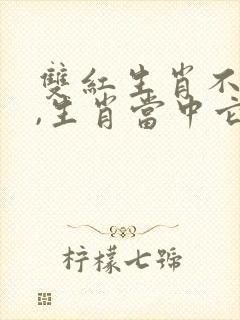 雙紅生肖不
,生肖當中它
柠檬七號